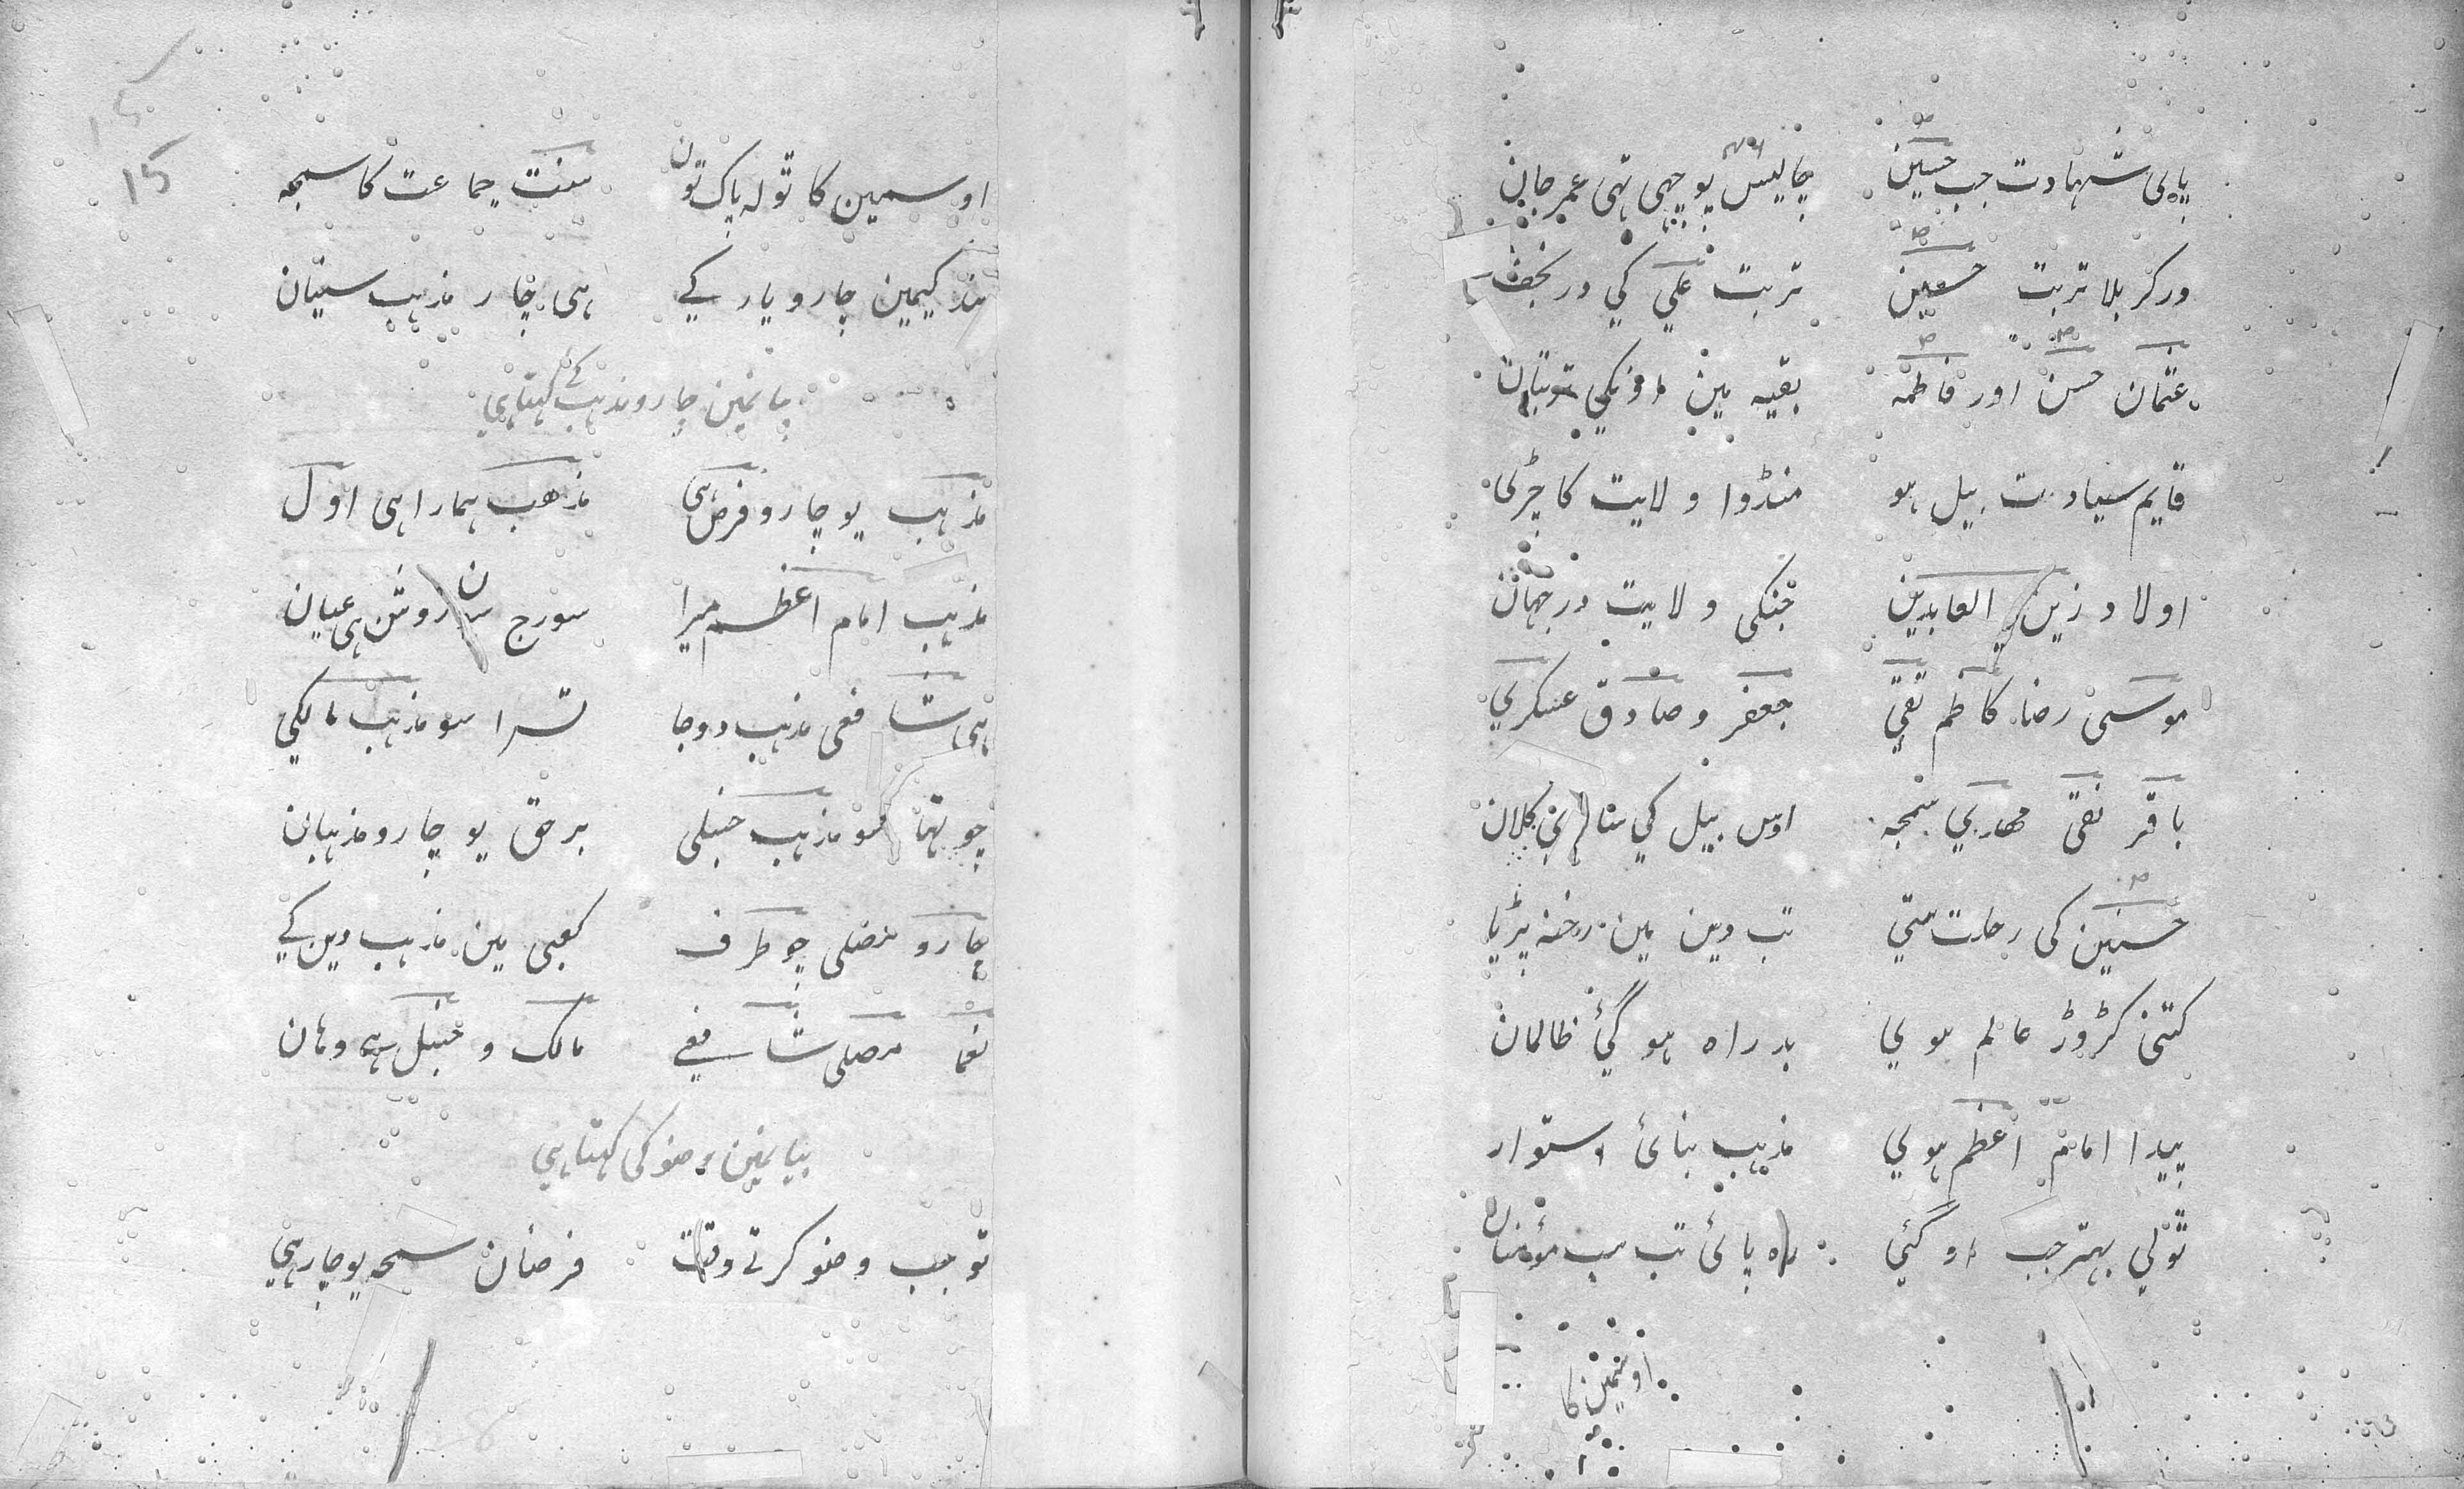 پایی شہادت جب حسین چالیس پوچھی تہی عمر جان
در کربلا تربت حسین تربت علی کی در نجف
عثمان حسن اور فاطمہ بقیہ مین
قایم سیادت بیل ہو منڈوا ولایت کا چڑی
اولاد زین العابدین جنکی ولایت در جہان
موسی رضا کاظم تقی جعفر و صادق عسکری
باقر نقی مہدی سمجہ اوس بیل کی کلان
حسنین کی رحلت ستی تب دین مین رخنہ پڑیا
کتنی کڑوڑ عالم ہوی بد راہ ہو گئی ظالمان
پیدا امام اعظم ہوی مذہب بنائی استوار
تولی بہتر جب او گئی راہ پائی تب سب مؤمنان
اوسمین کا
15
15
اوسمین کا تولہ پاک تون سنت جماعت کا سمجہ
چارو یار کے ہی چار مذہب سنیان
چارو مذہب کے کہتا ہی
مذہب یو چارو فرض ہی مذہب ہمارا ہی اول
مذہب امام اعظم میرا سورج سان روشن ہی عیان
ہی شافعی مذہب دوجا تسرا سو مذہب مالکی
چوتہا سو مذہب حنبلی برحق یو چارو مذہبان
چارو مصلی چو طرف کعبی مین مذہب دین کے
مصلی شافعی مالک و حنبل ہی وہان
بیا نمین وضو کی کہتا ہی
تو جب وضو کرتے وقت فرضان سمجہ یو چار ہی